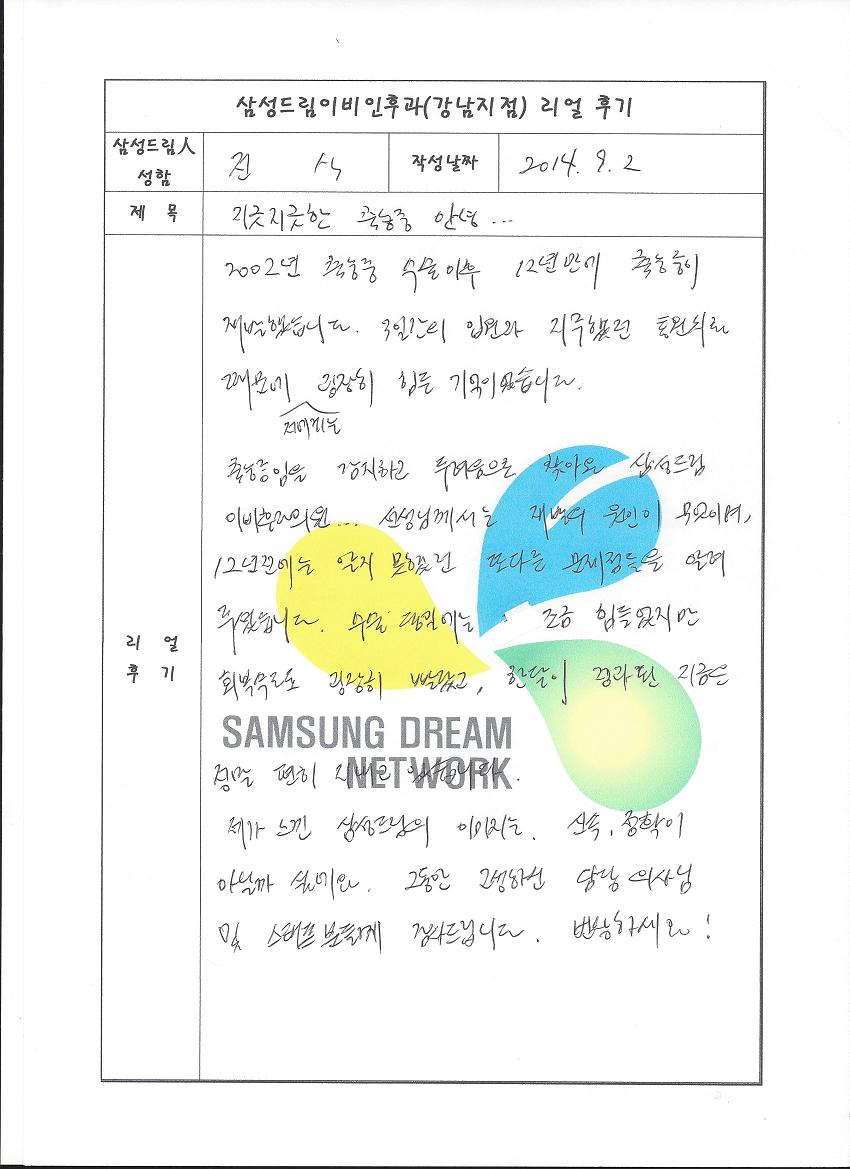 삼성드림이비인후과(강남지점) 리얼 후기
삼성드림人
성함
전 식
작성날짜
2014. 9. 2
제 목
지긋지긋한 축농증 안녕...
리 얼
후 기
2002년 축농증 수술이후 12년만에 축농증이
재발했습니다. 3일간의 입원과 지루했던 통원치료
때문에 굉장히 힘든 기억이었습니다.
저에게는
축농증임을 감지하고 두려움으로 찾아온 삼성드림
이비후과의원... 선생님께서는 재발의 원인이 무엇이며,
12년전에는 알지 못했던 또다른 문제점들을 알려
주셨습니다. 수술 당일에는 조금 힘들었지만
회복속도도 굉장히 빨랐고, 한달이 경과된 지금은
SAMSUNG DREAM
NETWORK
정말 편히 지내고 있습니다.
제가 느낀 삼성드림의 이미지는. 신속, 정확이
아닐까 싶네요. 그동안 고생하신 담당 의사님
및 스태프분들께 감사드립니다. 번창하세요!